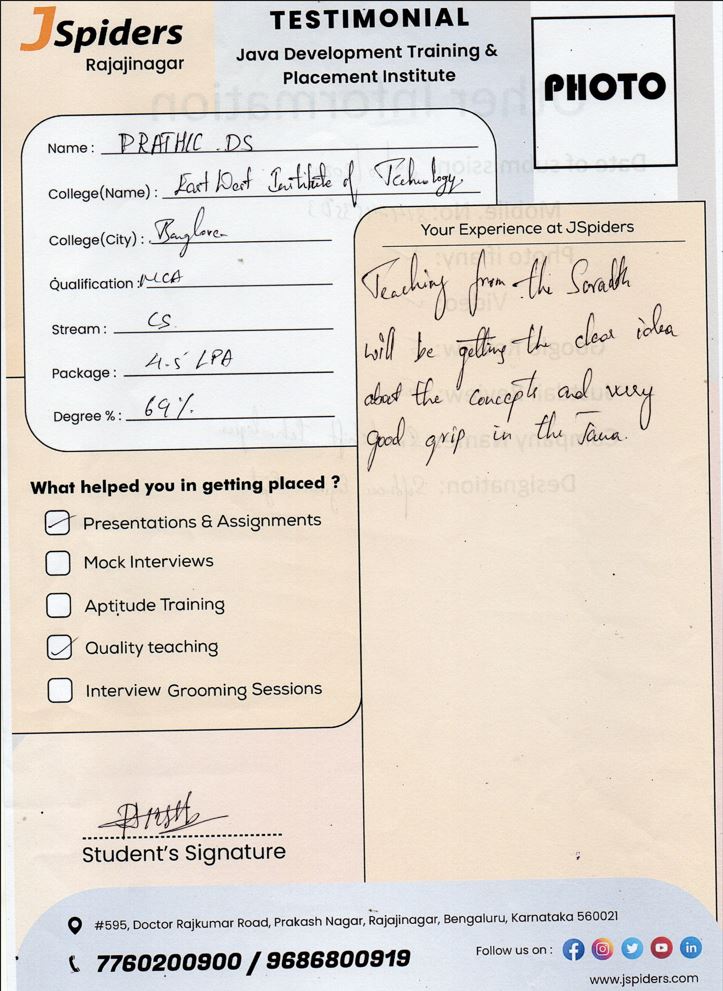 JSpiders
Rajajinagar
TESTIMONIAL
Java Development Training &
Placement Institute
PHOTO
Name : PRATHIC .DS
College(Name) : East West Institute of Technology.
College(City) : Banglore
Qualification : MCA
Stream : CS
Package : 4.5 LPA
Degree % : 69%.
What helped you in getting placed ?
Presentations & Assignments
Mock Interviews
Aptitude Training
Quality teaching
Interview Grooming Sessions
Your Experience at JSpiders
Teaching from the Saradh
will be getting the clear idea
about the concepts and very
good grip in the Java.
Student's Signature
#595, Doctor Rajkumar Road, Prakash Nagar, Rajajinagar, Bengaluru, Karnataka 560021
7760200900 / 9686800919
Follow us on :
www.jspiders.com